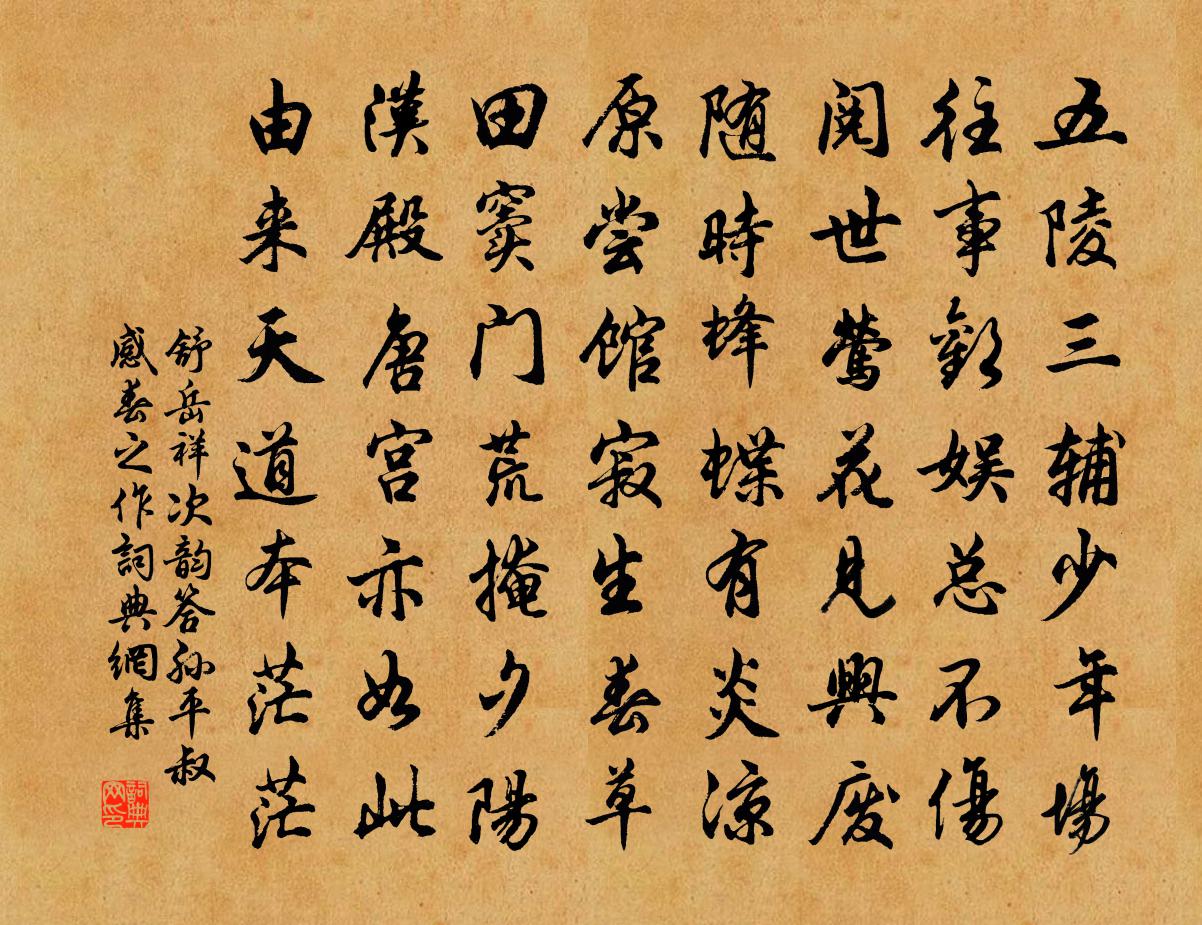 五陵三辅少年場
往事歡娱总不傷
阅世鶯花見興废
随時蜂蝶有炎凉
原尝馆寂生春草
田窦门荒掩夕陽
漢殿唐宫亦如此
由来天道本茫茫
舒岳祥次韵答孙平叔
感春之作詞典網集
詞典网印